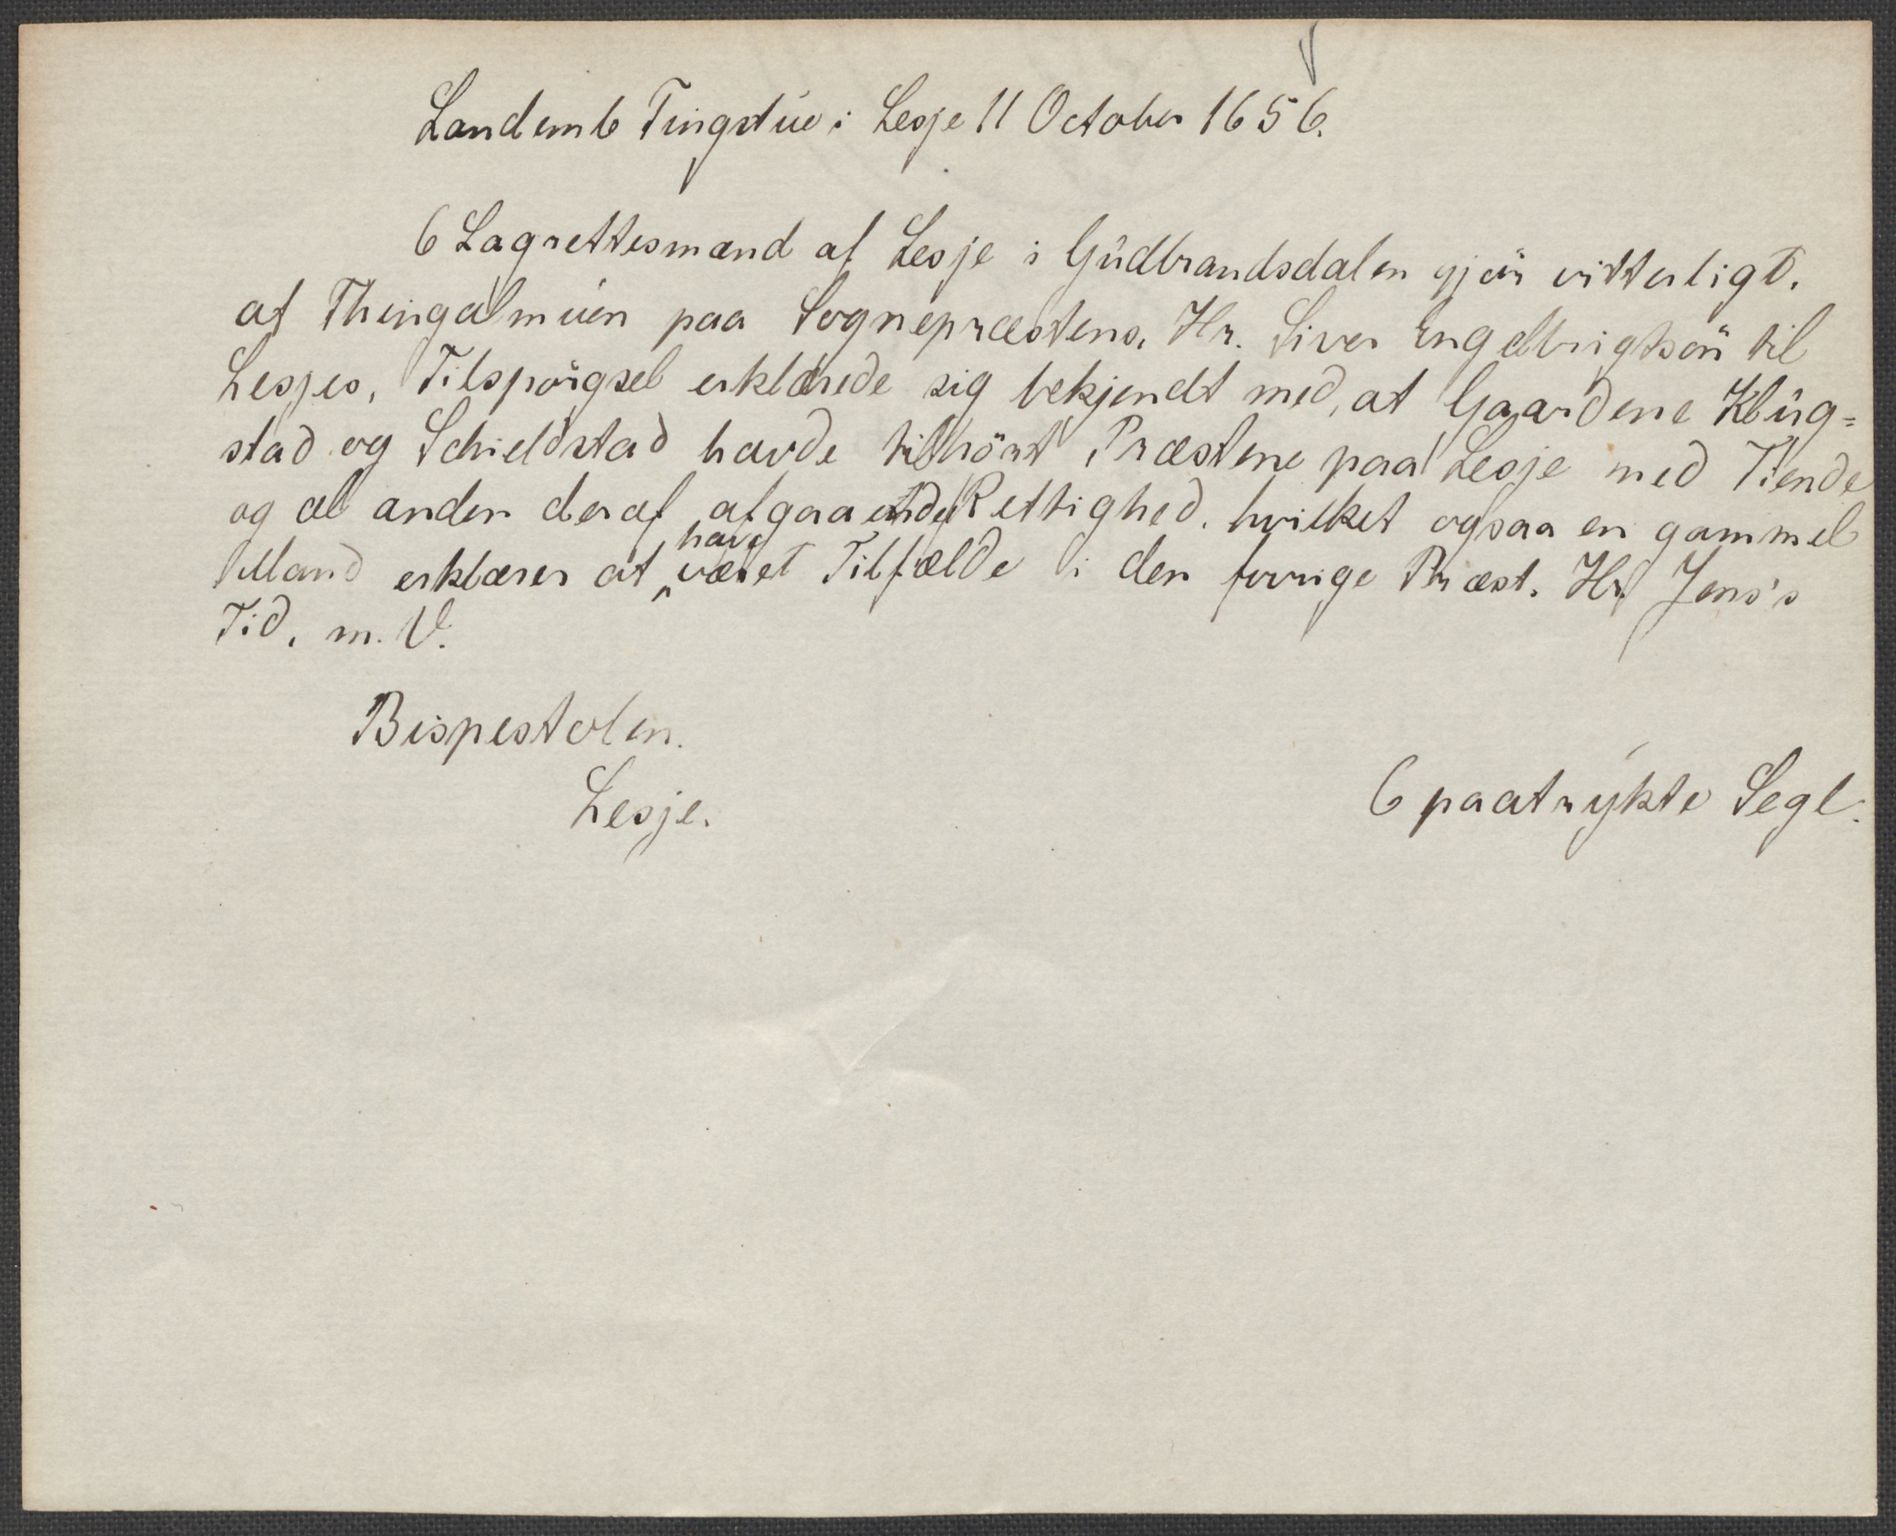 Landemb Tingstue i Lesje 11 October 1656.
6 Lagrettesmænd af Lesje i Gudbrandsdalen gjör vitterligt,
at Thingalmuen paa Sognepræstens, Hr. Siver Engelbrigtsön til
Lesjes, Tilspörgsel erklærede sig bekjendt med, at Gaardene Klûg=
stad og Schieldstad havde tilhört Præstene paa Lesje med Tiende
og al anden deraf afgaaende Rettighed, hvilket ogsaa en gammel
Mand erklærer at have været Tilfælde i den forrige Præst, Hr. Jens's
Tid, m. V.
Bispestolen.
Lesje.
6 paatrykte Segl.